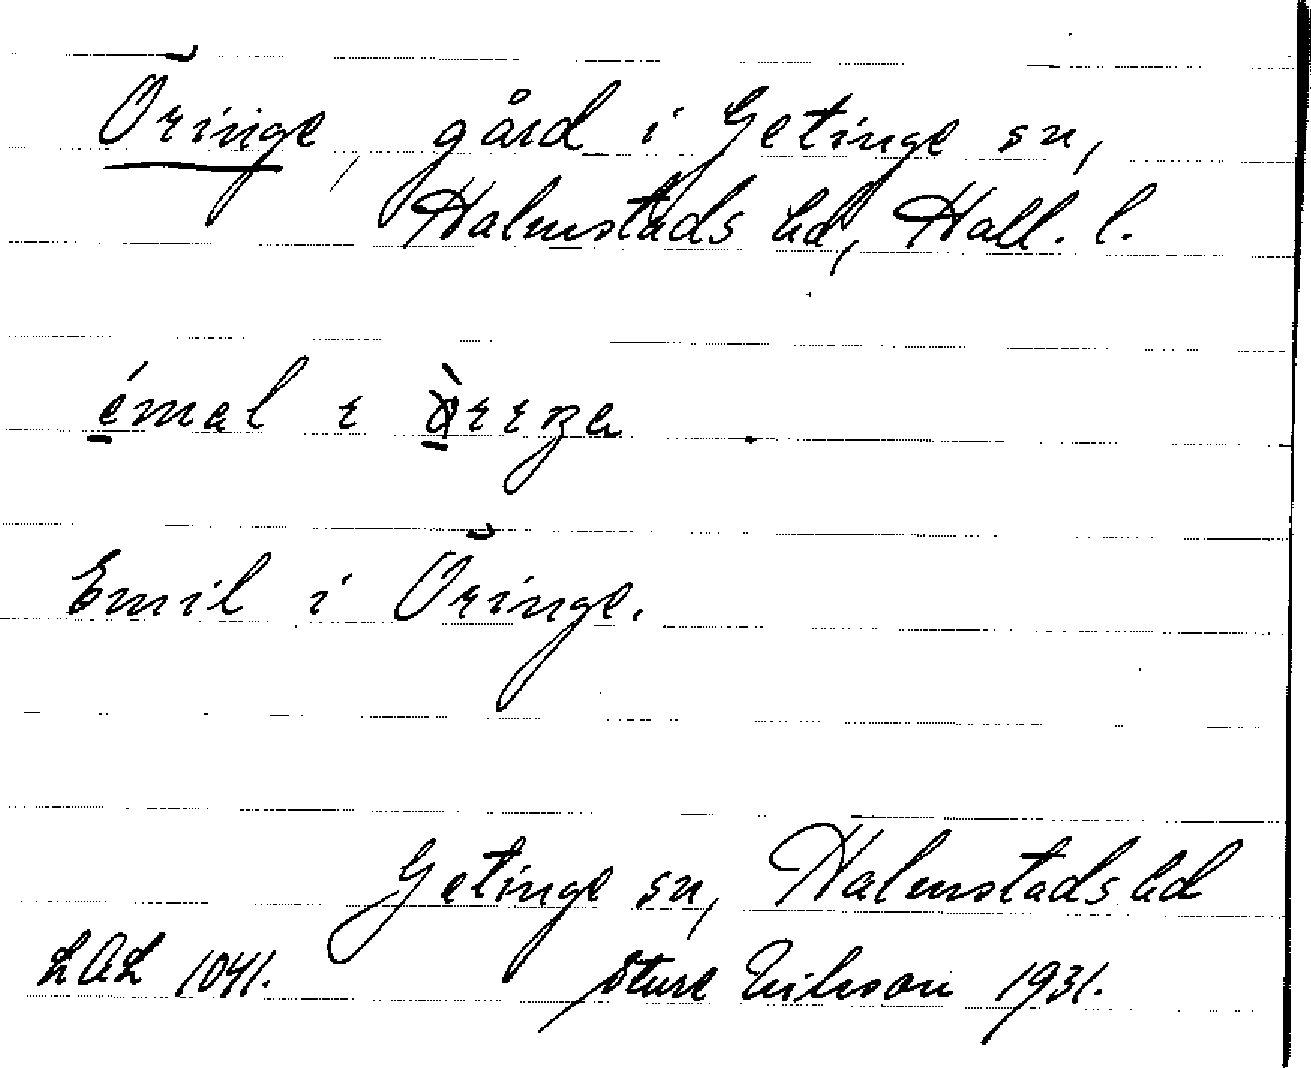 Öringe, gård i Getinge sn,
Halmstads hd, Hall. l.
Emil i Öringe.
Getinge sn, Halmstads hd
LAL 1041. Sture Nilsson 1931.